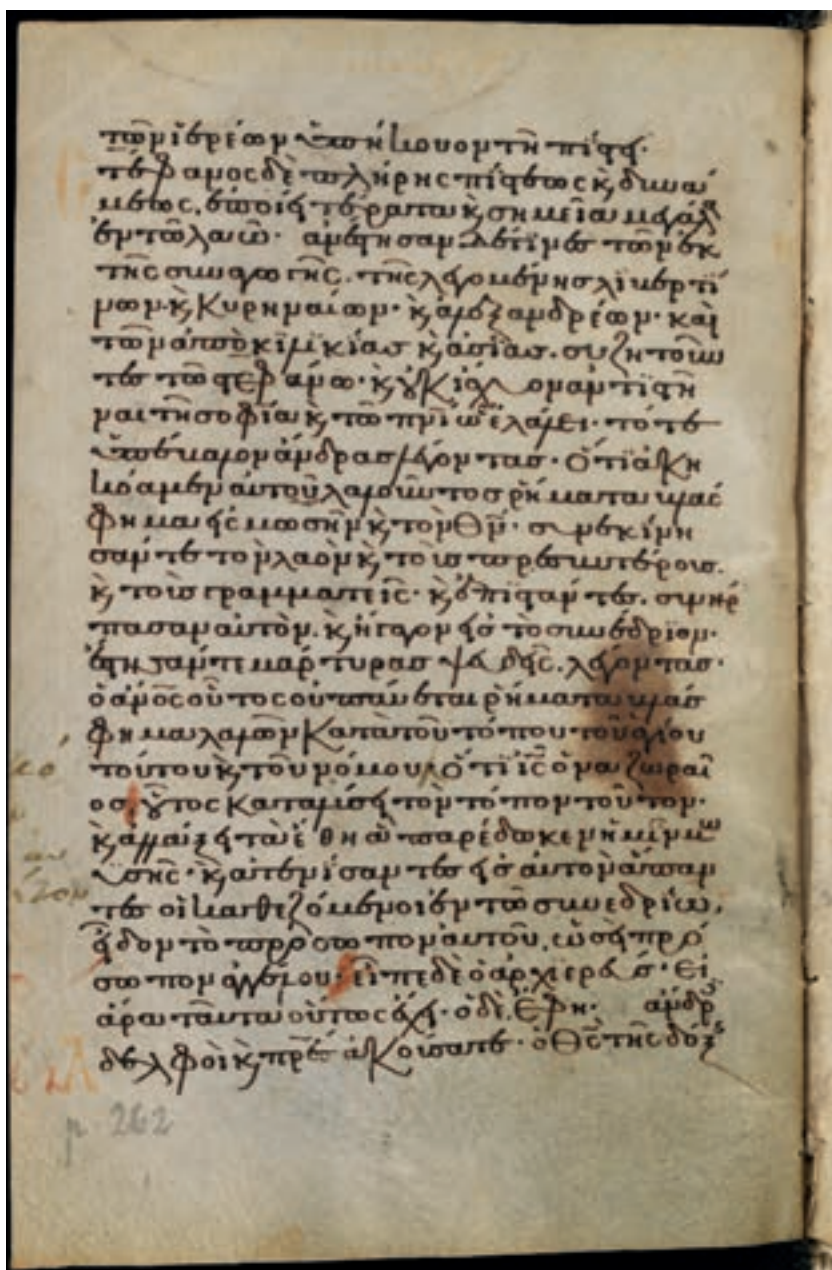 τῶν ἱερέων ὑπήκουον τῇ πίστει·
τέφανος δὲ πλήρης πίστεως κ, δυνά
μεως, ἐποίει τέρατα κ, σημεῖα μεγάλα
ἐν τῶ λαῶ· ἀνέστησαν δέ τινες τῶν ἐκ
τῆς συναγωγῆς τῆς λεγομένης λιβερτί
νων κ, Κυρηναίων· κ, ἀλεξανδρέων· καὶ
τῶν ἀπὸ κιλικίας κ, ἀσίας. συζητοῦν
τες τῶ στεφάνω· κ, οὐκ ἴσχυον ἀντιστῆ
ναι τῆ σοφία κ, τῶ πνι ὧ ἐλάλει· τότε
ὑπέβαλον ἄνδρας λέγοντας· ὅτι ἀκη
κόαμεν αὐτοῦ λαλοῦντος ῥήματα βλάς
φημα εἰς μωσῆν κ, τὸν θν· συνεκίνη
σάν τε τὸν λαὸν κ, τοὺς πρεσβυτέρους.
κ, τοὺς γραμματεῖς· κ, ἐπιστάντες. συνήρ
πασαν αὐτὸν. κ, ἤγαγον εἰς τὸ συνέδριον·
ἔστησάν τε μάρτυρας ψευδεῖς. λέγοντας·
ὁ ἀνος οὗτος οὐ παύεται ῥήματα βλάς
φημα λαλῶν κατὰ τοῦ τόπου τοῦ ἁγίου
τούτου κ, τοῦ νόμου· ὅτι ις ὁ ναζωραῖ
ος οὗτος καταλύσει τὸν τόπον τοῦτον·
κ, ἀλλάξει τὰ ἔθη ἃ παρέδωκεν ἡμῖν μω
ϋσῆς· κ, ἀτενίσαντες εἰς αὐτὸν ἅπαν
τες οἱ καθεζόμενοι ἐν τῶ συνεδρίω,
εἶδον τὸ πρόσωπον αὐτοῦ, ὡσεὶ πρό
σωπον ἀγγέλου· εἶπε δὲ ὁ ἀρχιερεύς· εἰ
ἄρα ταῦτα οὕτως ἔχει· ὁ δὲ ἔφη· ἄνδρες
δελφοὶ κ, πρες ἀκούσατε· ὁ θς τῆς δόξης
p. 262